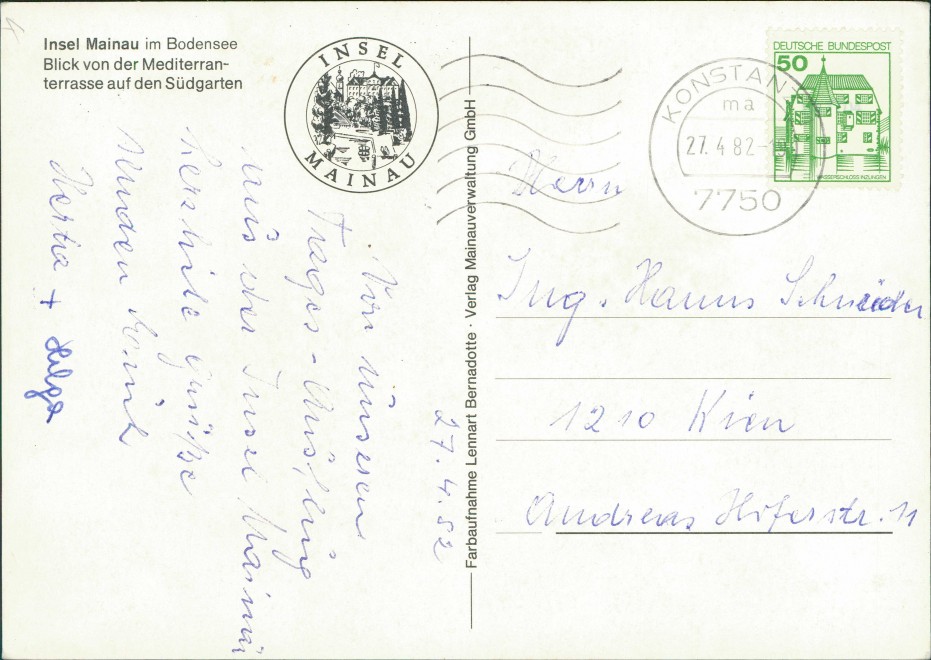 Insel Mainau im Bodensee
Blick von der Mediterran-
terrasse auf den Südgarten
INSEL
MAINAU
27.4.82
Von unserem
Tages-Ausflug
aus der Insel Mainau
herzliche Grüße
Hertha + Helga
Farbaufnahme Lennart Bernadotte · Verlag Mainauverwaltung GmbH
KONSTANZ
ma
27.4.82
7750
DEUTSCHE BUNDESPOST
50
WASSERSCHLOSS INZLINGEN
Herrn
Ing. Hanns Schneider
1210 Wien
Andreas Hoferstr. 11